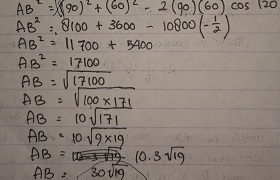 AB² = (90)² + (60)² - 2 (90)(60) cos (120
AB² = 8100 + 3600 - 10800 (-1/2)
AB² = 11700 + 5400
AB² = 17100
AB = √17100
AB = √100 × 171
AB = 10√171
AB = 10√9 × 19
AB = 10·3√19 10.3√19
AB = 30√19